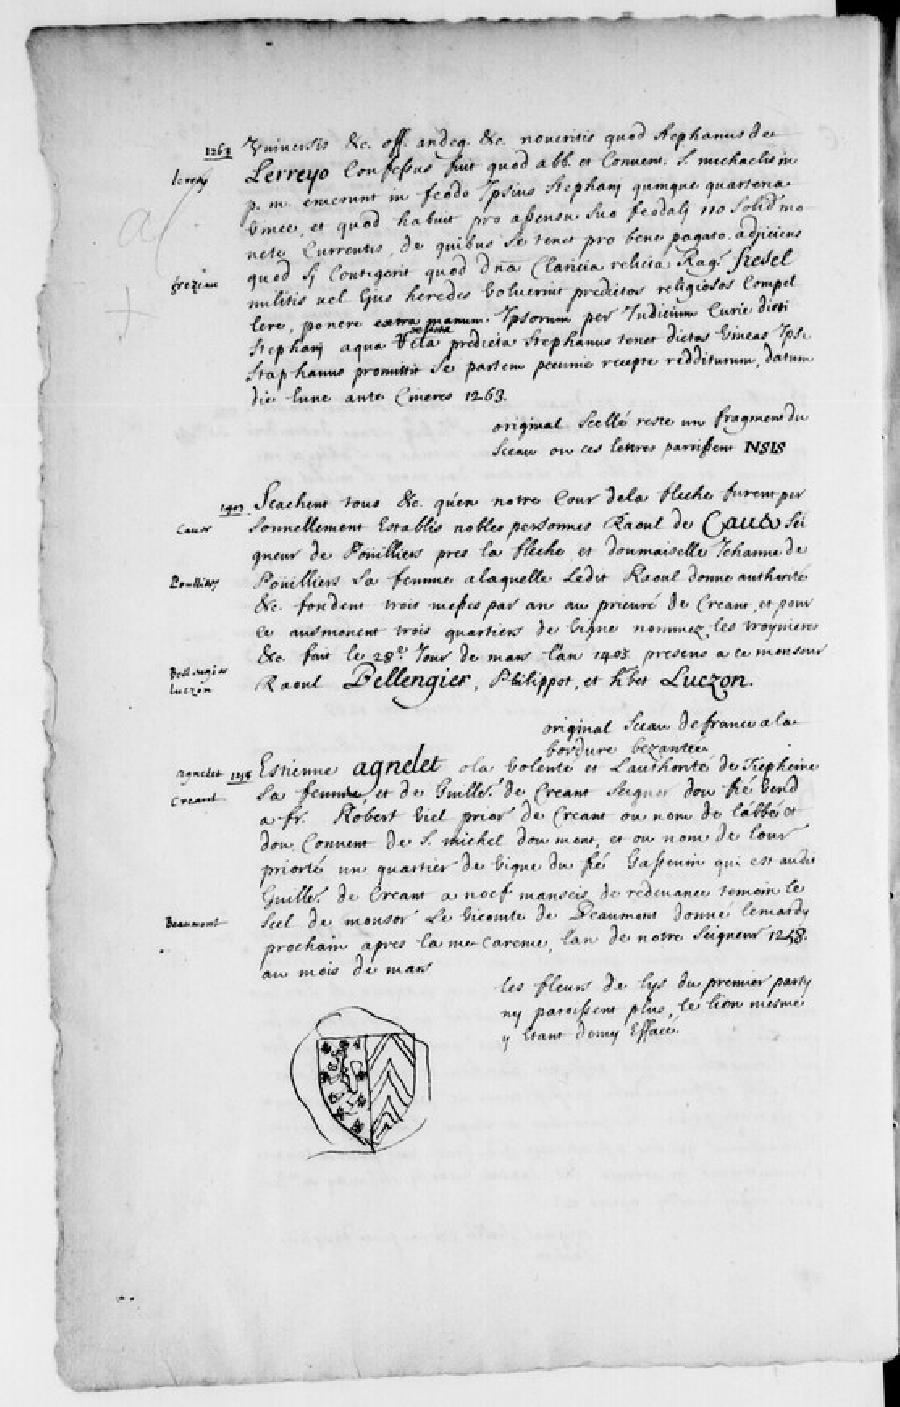 1263 Universis &c. off. andeg. &c. noveritis quod Stephanus de
Lerrey Lerreyo Confessus fuit quod abb. et Convent. S. michaelis in
p. m. emerunt in feodo Ipsius Stephanj quinque quarteria
vinee, et quod habuit pro assensu suo feodalj 110 Solid mo
nete Currentis, de quibus se tenet pro bene pagato. adjiciens
frezeau quod sj Contigerit quod dna Claricia relicta Rag. fresel
militis vel Ejus heredes Voluerint predictos religiosos Compel
lere, ponere extra manum Ipsorum per Judicium Curie dicti
Stephanj aqua Vela predicta Stephanus tenet dictas Vineas Ipse
Staphanus promittit se partem pecunie recepte redditurum, datum
die lune ante Cineres 1263.
original Scellé reste un fragment du
Sceau ou ces lettres parrissent NSIS
1403 Scachent tous &c. qu'en notre Cour dela fleche furent per
Caux sonnellement Establis nobles personnes Raoul de Caux Sei
gneur de Poüilliers pres la fleche et doumaiselle Jehanne de
Pouilliers Poüilliers sa femme alaquelle Ledit Raoul donne authorité
&c. fondent trois messes par an au prieuré de Creant, et pour
ce ausmonent trois quartiers de Vigne nommez les troynieres
&c fait le 28e Jour de mars l'an 1403 presens a ce monsour
Bellengier
Luczon
Raoul Bellengier, Philippot, et hbet Luczon.
original Sceau de france a la
bordure bezantée
agnelet 1248 Estienne agnelet o la Volenté et L'authorité de Tiepheine
Creant Sa femme et de Guille. de Creant Seignor dou fié Vend
a fr. Robert Viel prior de Creant ou nom de l'abbé et
dou Convent de S. michel dou mont, et ou nom de lour
priorté un quartier de Vigne du fié Gassenin qui est audit
Guille. de Creant a noef manseis de redevance temoin le
Beaumont Scel de monsor Le Vicomte de Beaumont donné lemardy
prochain apres la me Careme, lan de notre Seigneur 1248.
au mois de mars
les fleurs de lys du premier party
ny paroissent plus, le lion mesme
y Etant demy Effacé.